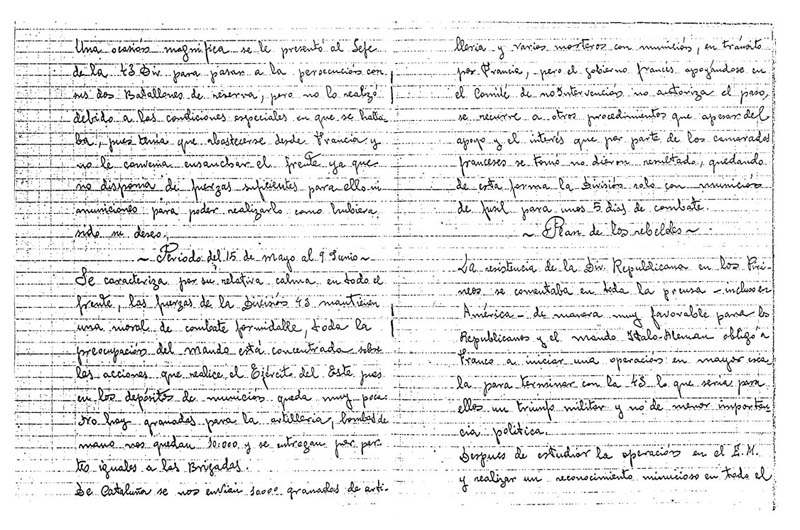 Una ocasión magnifica se le presentó al Jefe
de la 43 Div. para pasar a la persecución con
sus dos Batallones de reserva, pero no lo realizó
debido a las condiciones especiales en que se halla
ba, pues tenia que abastecerse desde Francia y
no le convenia ensanchar el frente ya que
no disponia de fuerzas suficientes para ello ni
municiones para poder realizarlo como hubiera
sido su deseo.
~ Periodo del 15 de mayo al 9 Junio ~
Se caracteriza por su relativa calma en todo el
frente, las fuerzas de la División 43 mantienen
una moral de combate formidable, toda la
preocupación del mando está concentrada sobre
las acciones que realice el Ejército del Este, pues
en los depósitos de municion queda muy poca
No hay granadas para la artilleria, bombas de
mano nos quedan 10.000 y se entregan por par-
tes iguales a las Brigadas.
De Cataluña se nos envian 10000 granadas de arti-
lleria y varios morteros con munición, en tránsito
por Francia, pero el gobierno frances apoyandose en
el Comité de no Intervención no autoriza el paso,
se recurre a otros procedimientos que apesar del
apoyo y el interés que por parte de los camaradas
franceses se tomó no dieron resultado, quedando
de esta forma la División solo con munición
de fusil para unos 5 dias de combate.
~ Plan de los rebeldes ~
La resistencia de la Div. Republicana en los Piri-
neos se comentaba en toda la prensa - incluso en
América - de manera muy favorable para los
Republicanos y el mando Italo-Aleman obligó a
Franco a iniciar una operación en mayor esca
la para terminar con la 43 lo que seria para
ellos un triunfo militar y no de menor importan
cia politica.
Despues de estudiar la operación en el E.M.
y realizar un reconocimiento minucioso en todo el